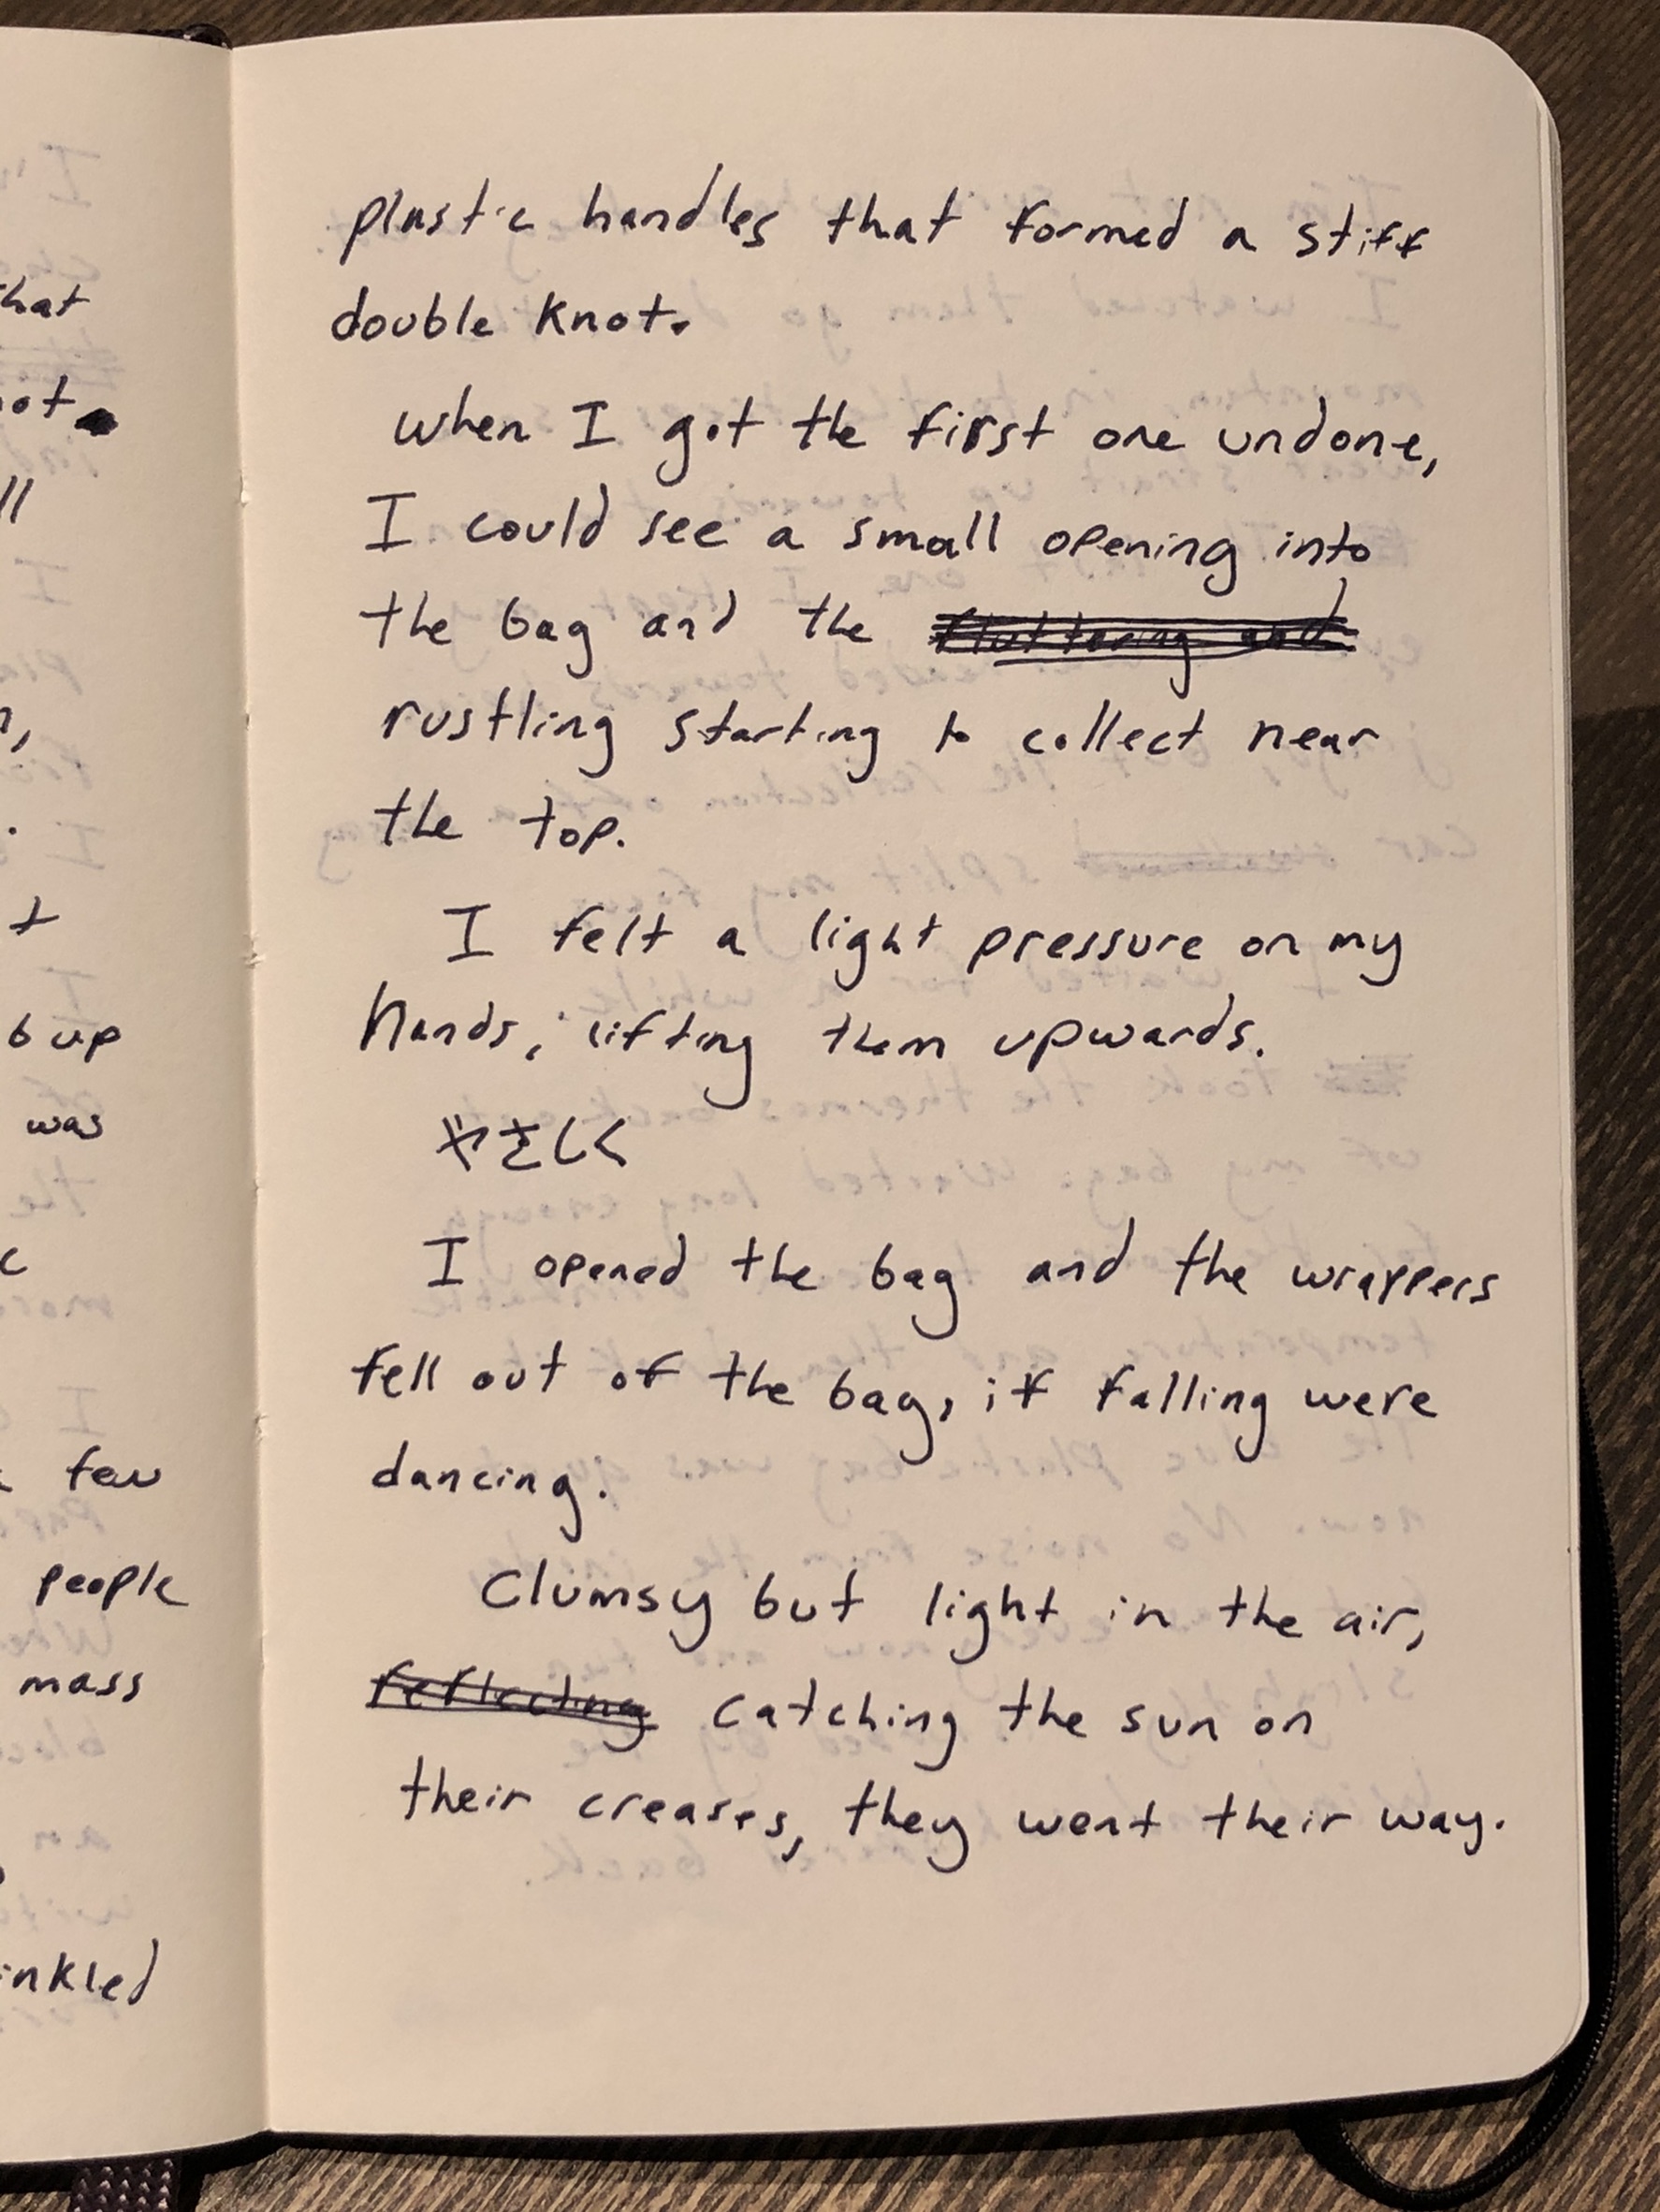 hat
ot.
ll
b up
was
few
people
mass
inkled
plastic handles that formed a stiff
double knot.
when I got the first one undone,
I could see a small opening into
the bag and the fluttering and
rustling starting to collect near
the top.
I felt a light pressure on my
hands, lifting them upwards.
やさしく
I opened the bag and the wrappers
fell out of the bag, if falling were
dancing.
Clumsy but light in the air,
reflecting catching the sun on
their creases, they went their way.